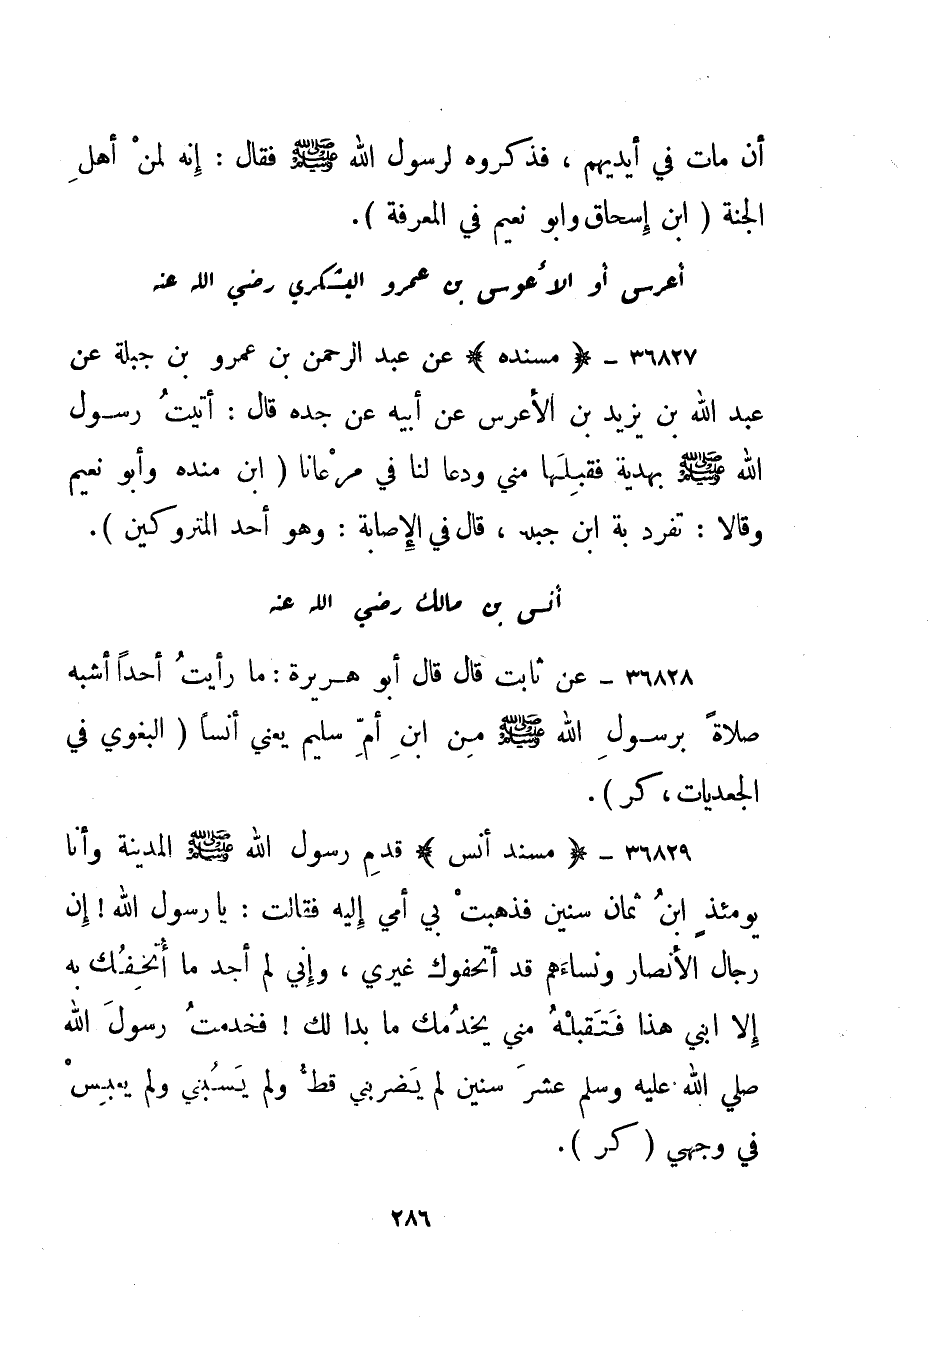 أن مات في أيديهم ، فذكروه لرسول الله ﷺ فقال : إِنه لمنْ أهلِ
الجنة ( ابن إِسحاق وابو نعيم في المعرفة ).
أعرسى أو الأعوسى بن عمرو اليشكري رضي الله عنه
٣٦٨٢٧ - ﴿ مسنده ﴾ عن عبد الرحمن بن عمرو بن جبلة عن
عبد الله بن يزيد بن الأعرس عن أبيه عن جده قال : أتيتُ رسول
الله ﷺ بهدية فقبلَها مني ودعا لنا في مرْعانا ( ابن منده وأبو نعيم
وقالا : تفرد بة ابن جبلة ، قال في الإِصابة : وهو أحد المتروكين ).
أنس بن مالك رضي الله عنه
٣٦٨٢٨ - عن ثابت قال قال أبو هريرة : ما رأيتُ أحداً أشبه
صلاةً برسولِ الله ﷺ من ابنِ أمِّ سليم يعني أنساً ( البغوي في
الجعديات ، كر ).
٣٦٨٢٩ - ﴿ مسند أنس ﴾ قدمِ رسول الله ﷺ المدينة وأنا
يومئذٍ ابنُ ثمان سنين فذهبتْ بي أمي إِليه فقالت : يا رسول الله ! إِن
رجال الأنصار ونساءَهم قد أتحفوك غيري ، وإِني لم أجد ما أُتحِفُك به
إِلا ابني هذا فَتَقبلْهُ مني يخدُمك ما بدا لك ! فخدمتُ رسولَ الله
صلي الله عليه وسلم عشرَ سنين لم يَضربني قطُّ ولم يَسُبني ولم يعبِسْ
في وجهي ( كر ).
٢٨٦